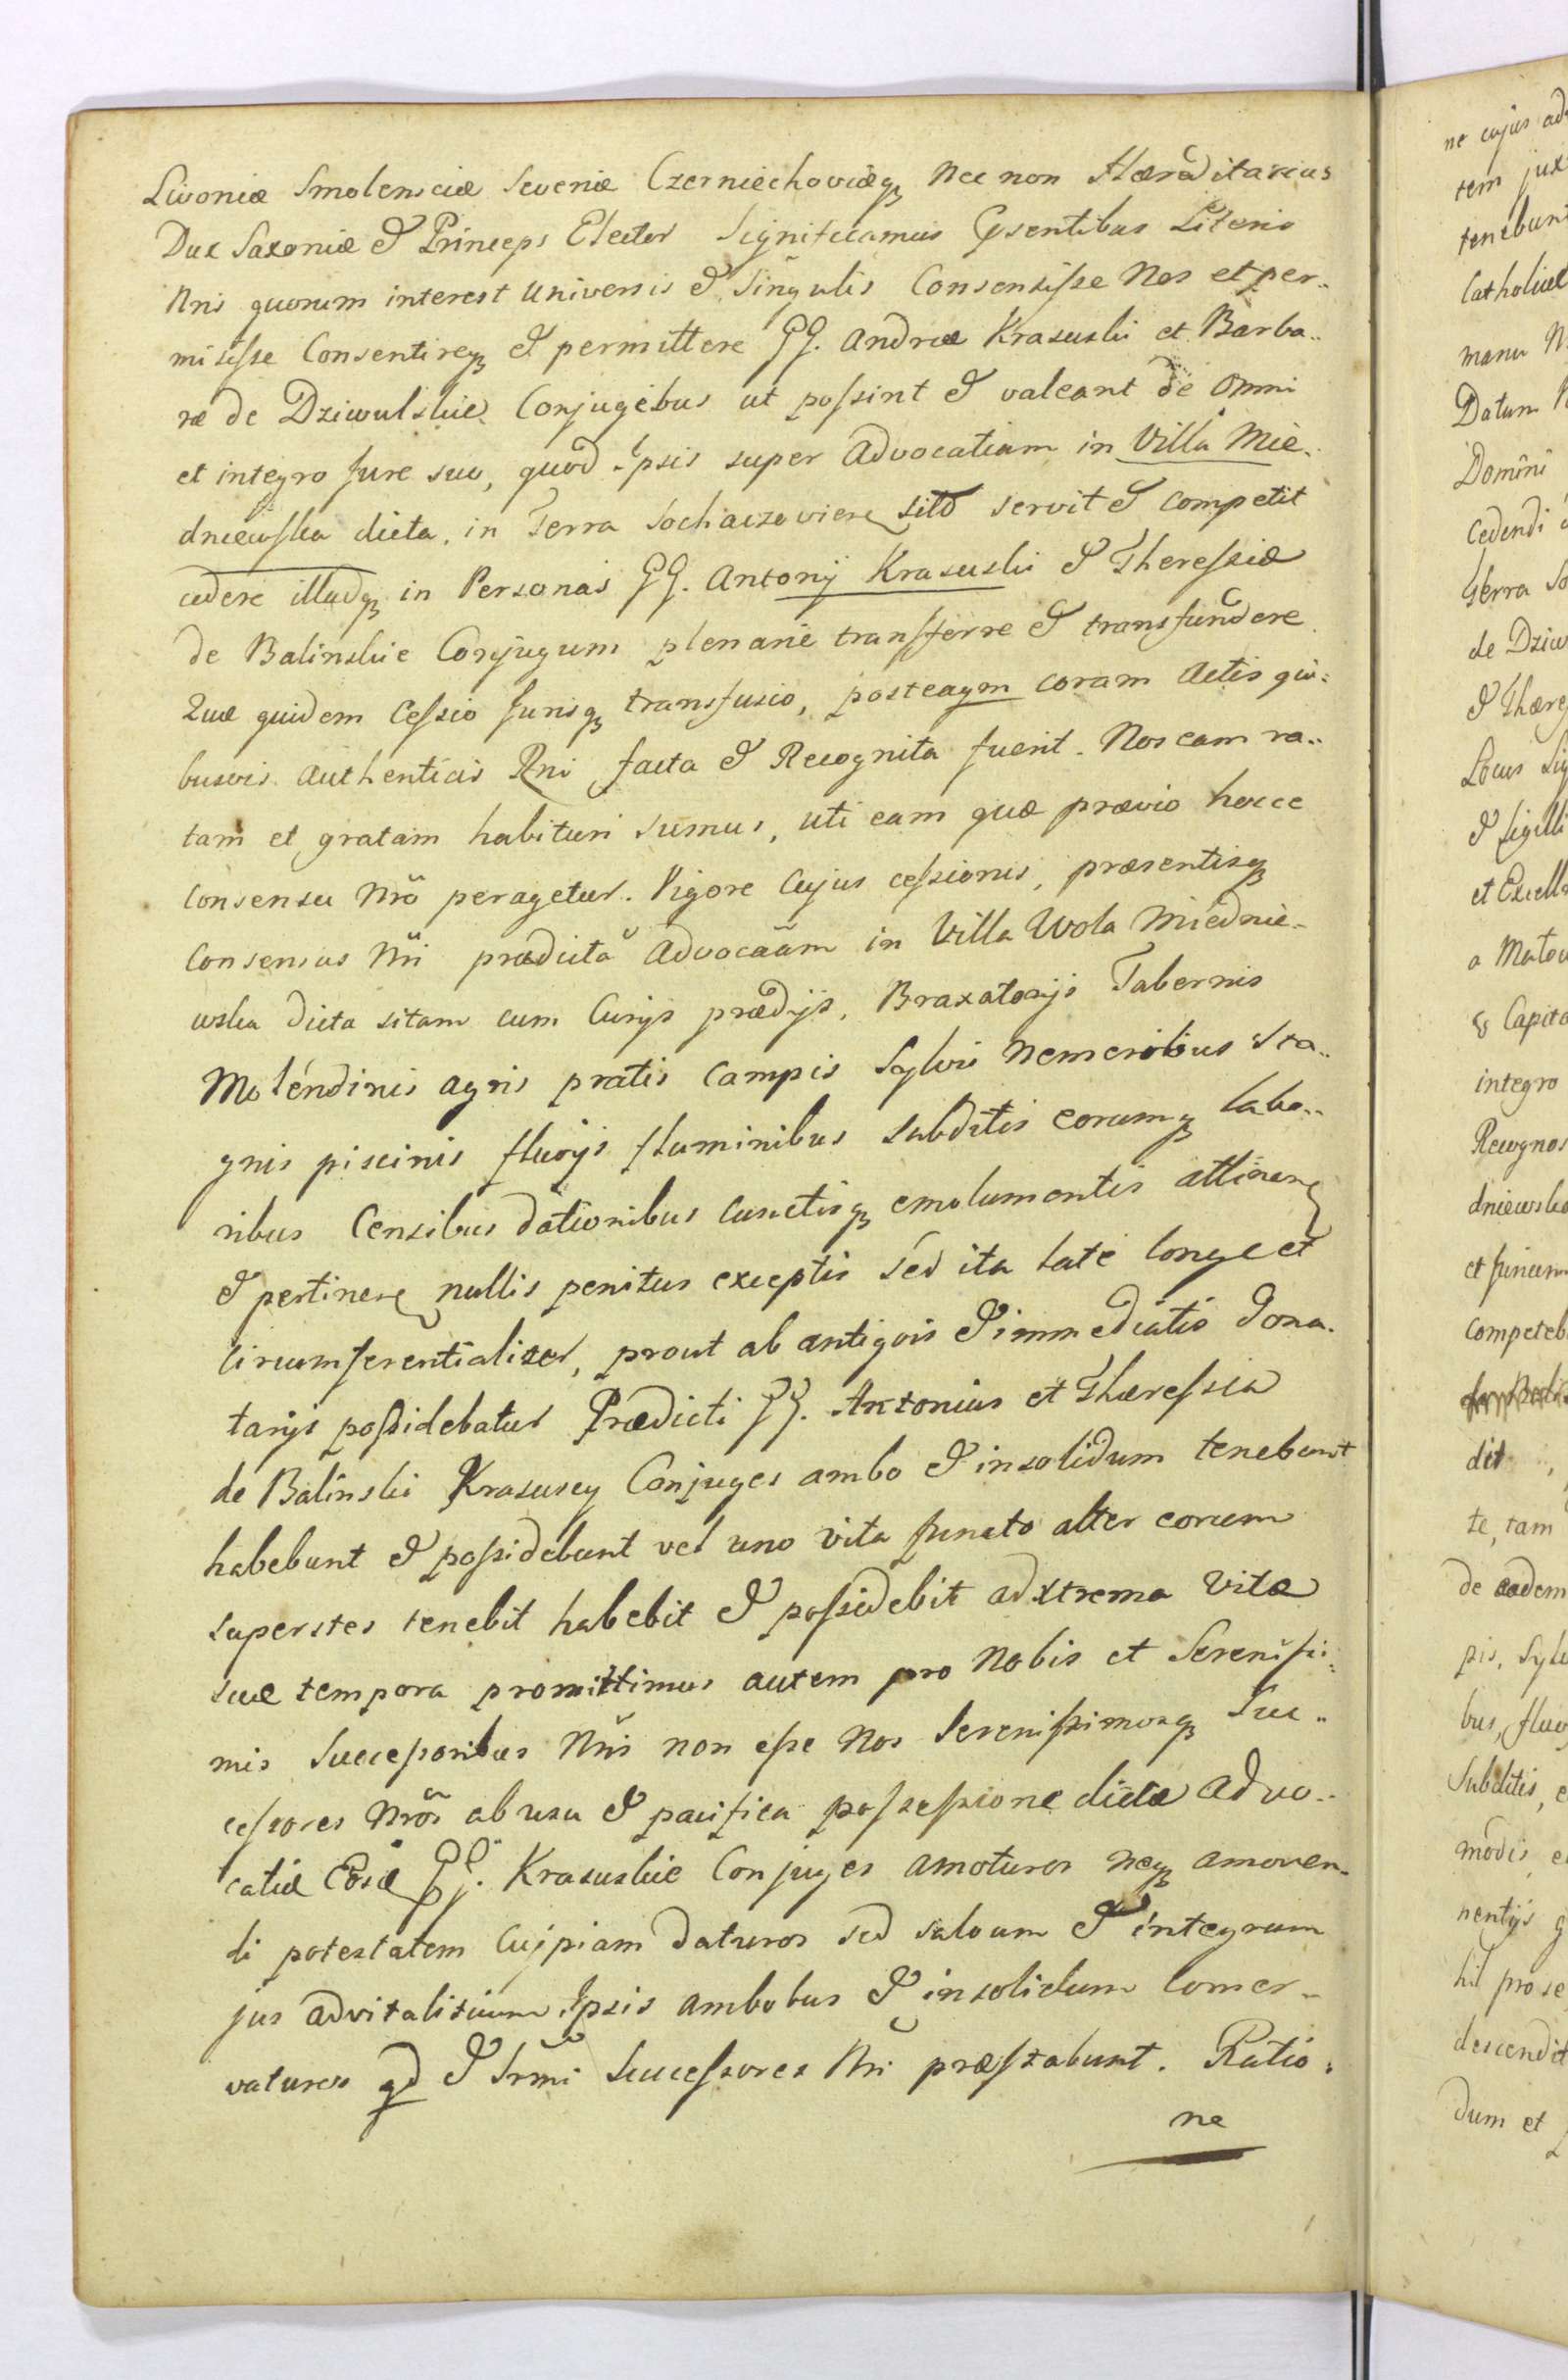 Livoniæ Smolensciæ Severiæ Czerniechoviæq₃ Nec non Hæreditarius
Dux Saxoniæ & Princeps Elector Significamus Pñsentibus Literis
Nris quorum interest Universis & Singulis Consensisse Nos et per..
misisse Consentireq₃ & permittere GG. Andreæ Krasuski et Barba..
ræ de Dziwulskie Conjugibus ut possint & valeant de Omni
et integro Jure suo, quod Ipsis super Advocatiam in Villa Mie..
dniewska dicta, in Terra Sochaczoviens sita servit & competit
cedere illudq₃ in Personas GG. Antonij Krasuski & Theressiæ
de Balinskie Conjugum plenarie transferre & transfundere
Quæ quidem Cessio Jurisq₃ transfusio, posteaqm coram Actis qui:
busvis Authenticis Rni facta & Recognita fuerit. Nos eam ra..
tam et gratam habituri sumus, uti eam quæ prævio hocce
Consensu Nrõ peragetur. Vigore Cujus cessionis, præsentisq₃
Consensus Nri prædictã Advocaãm in Villa Wola Miednie-
wska Dicta sitam cum Curijs prædijs, Braxatorijs Tabernis
Molendinis agris pratis Campis Sylvis Nemoribus Sta..
gnis piscinis fluvijs fluminibus Subditis eorumq₃ labo..
ribus Censibus dationibus cunctisq₃ emolumentis attinen
& pertinen nullis penitus exceptis sed ita late longe et
circumferentialiter, prout ab antiquis & immediatis Dona.
tarijs possidebatur Prædicti GG. Antonius et Thæressia
de Balinski Krasuscy Conjuges ambo & insolidum tenebunt
habebunt & possidebunt vel uno vita functo alter eorum
superstes tenebit habebit & possidebit ad xtrema vitæ
suæ tempora promittimus autem pro Nobis et Serenissi:
mis Successoribus Nris non esse Nos Serenissimosq₃ Suc..
cessores Nros ab usu & pacifica possessione dictæ Advo..
catiæ Eosd GG. Krasuskie Conjuges amoturos neq₃ amoven-
di potestatem Cujpiam daturos sed salvum & integrum
jus advitalitium Ipsis ambobus & insolidum conser-
vaturos qd & Srmi Successores Nri præstabunt. Ratio:
ne
ne cujus ad
tem jux
tenebunt
Catholicæ
manu N
Datum
Domini
Cedendi
Terra So
de Dziw
& Thæres
Locus Sig
& Sigilli
et Excell
a Mato
& Capita
integro
Recognos
dniewska
et funium
Competeb
dit
te, tam
de eadem
pis, Sylv
bus, fluv
Subditis, e
modis e
nentijs q
hil pro se
descendit
dum et